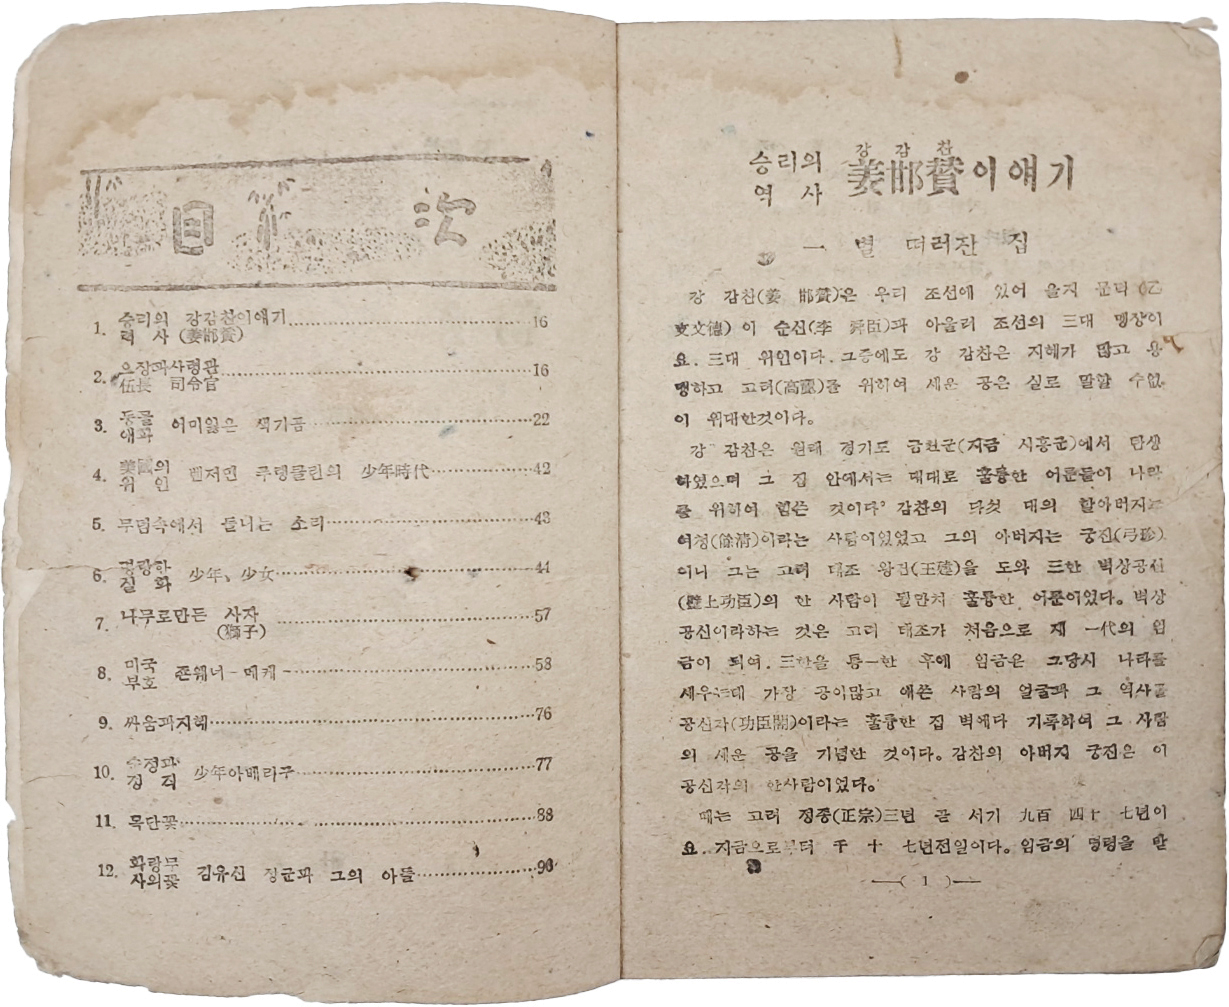 目次
1. 승리의 강감찬이애기 16
력 사 (姜邯賛)
2. 으장과사령관 16
伍長 司令官
3. 동물 어미잃은 색기곰 22
애화
4. 美國의 벤저민 후랭클린의 少年時代 42
위 인
5. 무덤속에서 들니는 소리 43
6. 명랑한 少年、少女 44
실 화
7. 나무로만든 사자 57
(獅子)
8. 미국 죤웨너―메케 58
부호
9. 싸움과지혜 76
10. 순정과 少年아베라구 77
정 직
11. 목단꽃 88
12. 화랑무 김유신 장군과 그의 아들 90
사의꽃
강 감 찬
승리의 姜邯賛이애기
역 사
一 별 떠러잔 집
강 감찬(姜 邯賛)은 우리 조선에 있어 을지 문덕 (乙
支文德) 이 순신(李 舜臣)과 아울러 조선의 三대 맹장이
요. 三대 위인이다. 그중에도 강 감찬은 지혜가 많고 용
맹하고 고려(高麗)를 위하여 세운 공은 실로 말할 수없
이 위대한것이다。
강 감찬은 원래 경기도 금천군(지금 시흥군)에서 탄생
하였으며 그 집 안에서는 대대로 훌륭한 어룬들이 나라
를 위하여 힘쓴 것이다 감찬의 다섯 대의 할아버지는
여청(餘淸)이라는 사람이있었고 그의 아버지는 궁진(弓珍)
이니 그는 고려 태조 왕건(王建)을 도와 三한 벽상공신
(壁上功臣)의 한 사람이 될만치 훌륭한 어룬이었다。벽상
공신이라하는 것은 고려 태조가 처음으로 제 一代의 임
금이 되여. 三한을 통一한 후에 임금은 그당시 나라를
세우는데 가장 공이많고 애쓴 사람의 얼굴과 그 역사를
공신각(功臣閣)이라는 훌륭한 집 벽에다 기록하여 그 사람
의 세운 공을 기념한 것이다。감찬의 아버지 궁진은 이
공신각의 한사람이었다。
때는 고려 정종(正宗)三년 곧 서기 九百 四十 七년이
요. 지금으로부터 千 十 七년전일이다。임금의 명령을 받
―( 1 )―